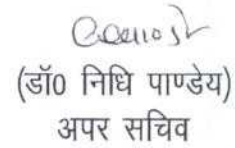 (डॉ0 निधि पाण्डेय)
अपर सचिव